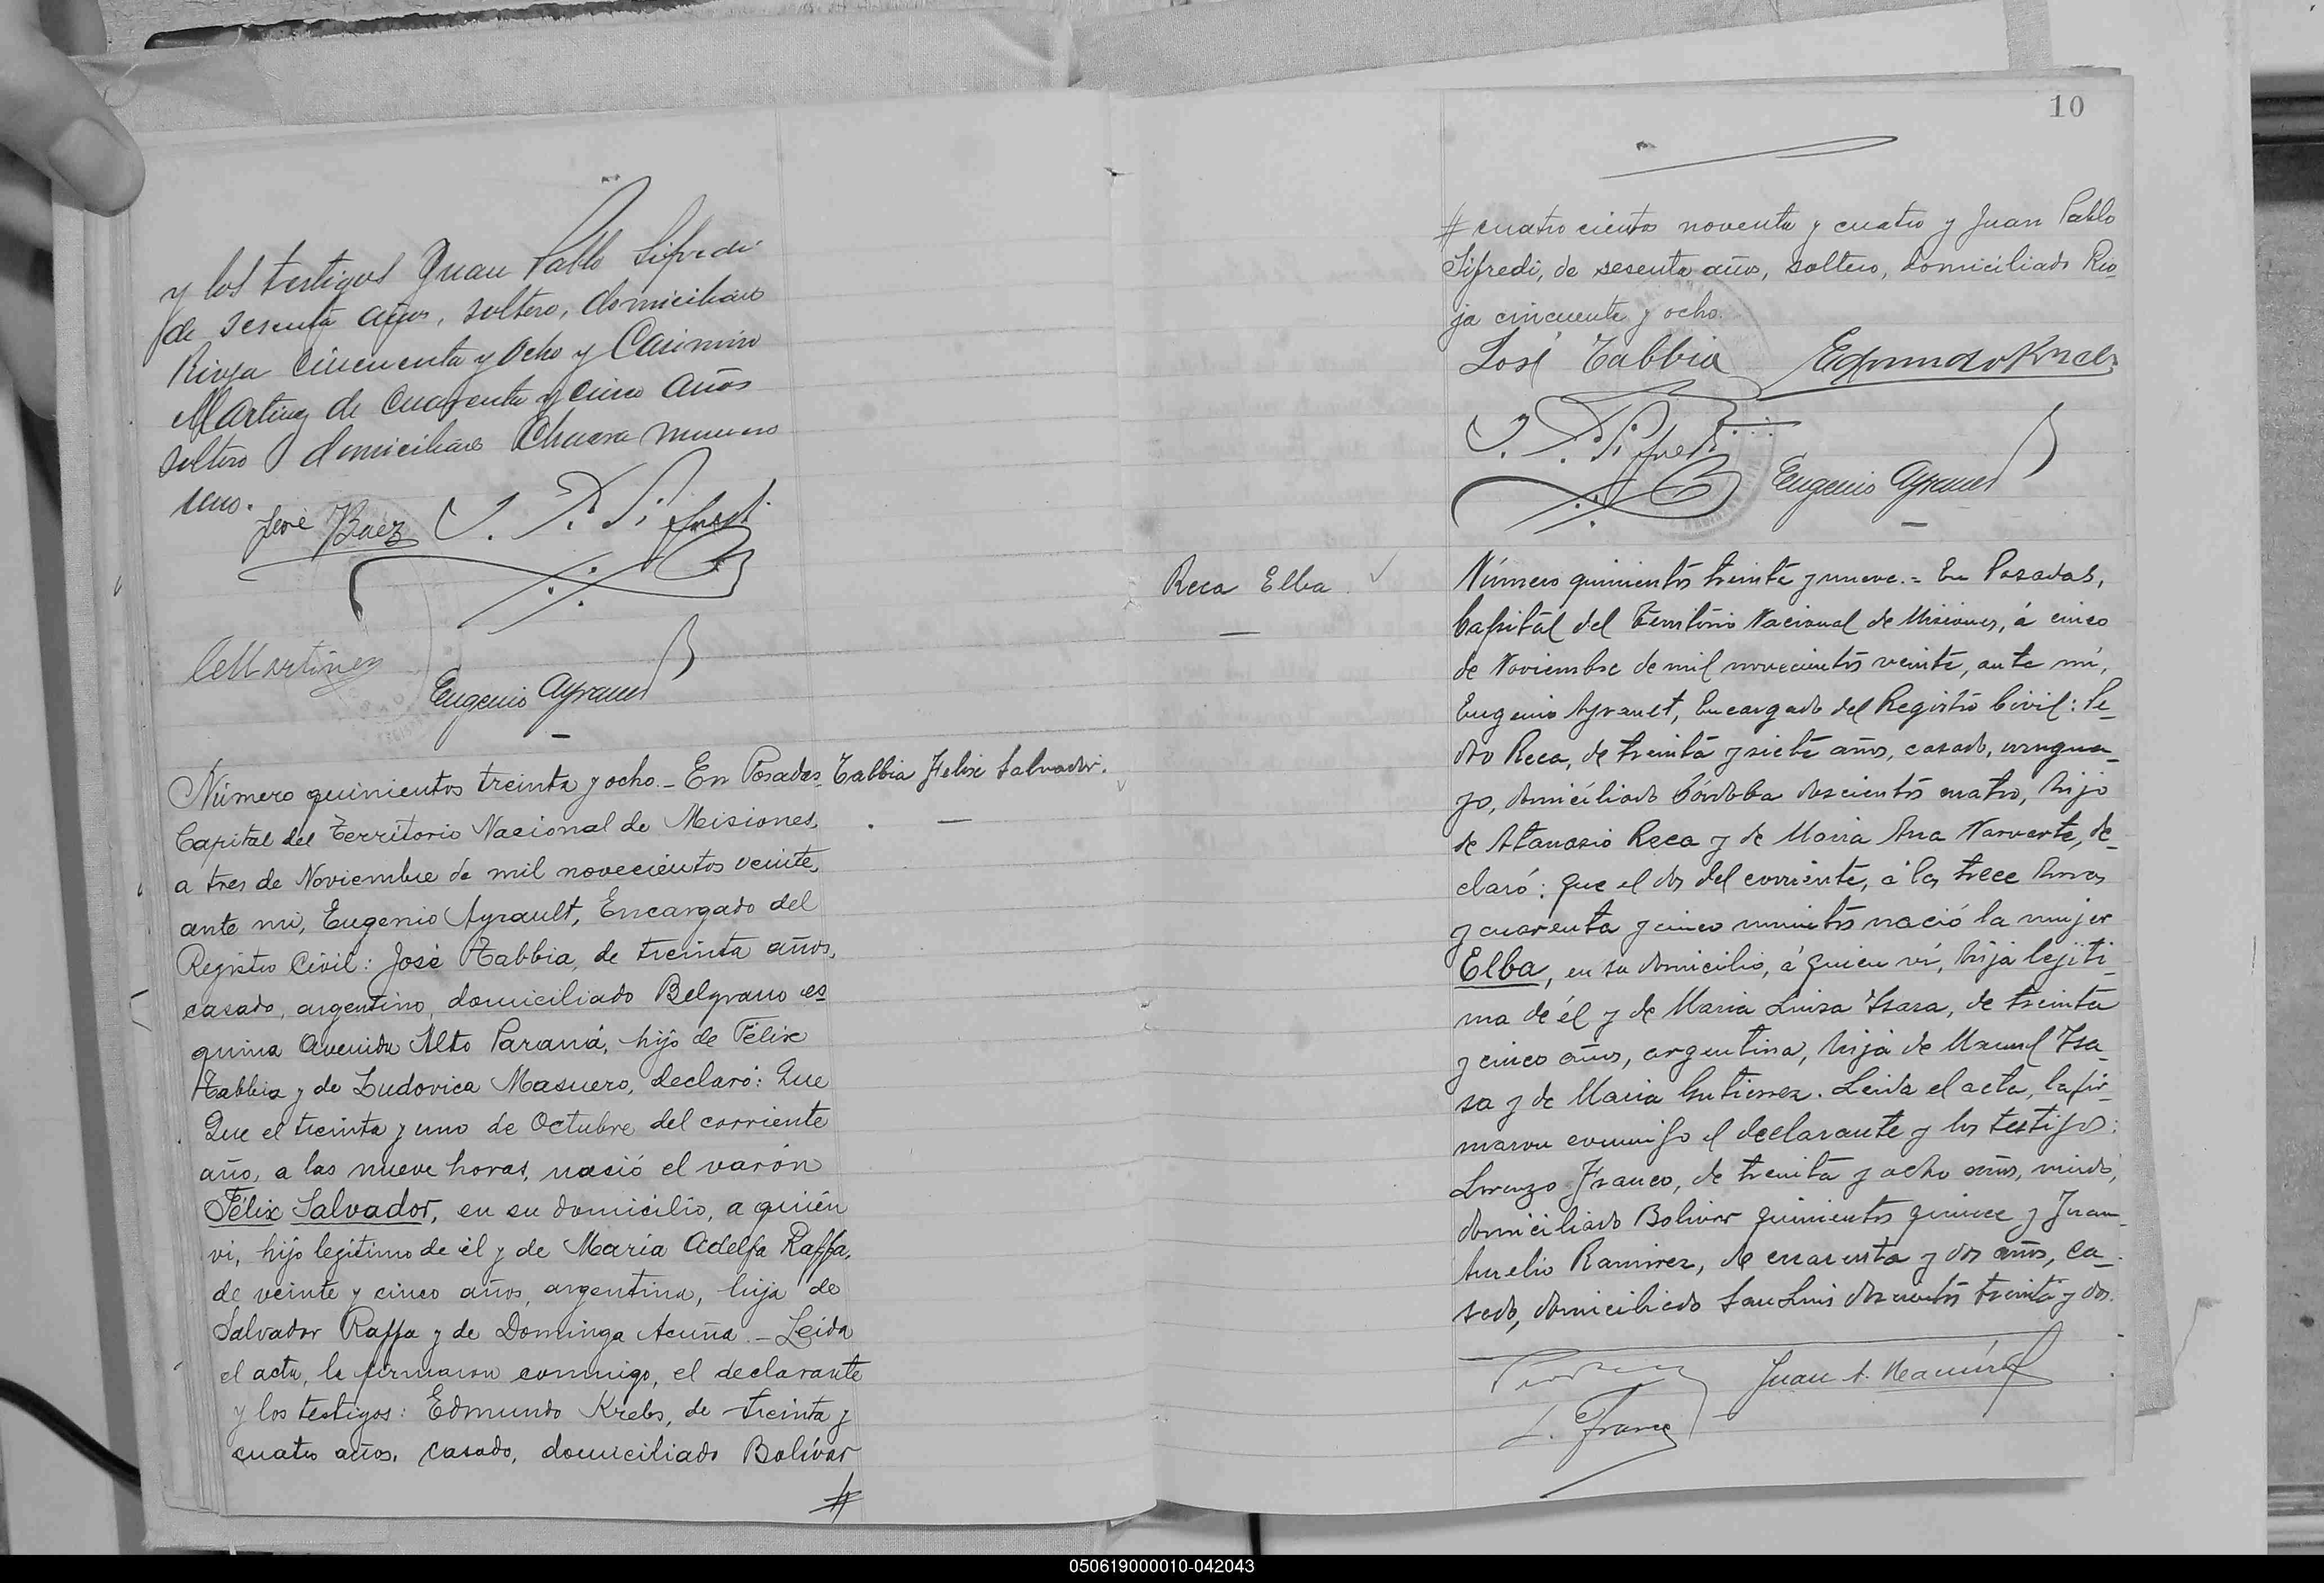 y los testigos Juan Pablo Sifredi
de sesenta años, soltero, domiciliado
Rioja cincuenta y ocho y Casimiro
Martinez de cuarenta y cinco años
soltero domiciliado Chacra numero
José Baez J. P. Sifredi
C Martinez
Eugenio Ayrault
Número quinientos treinta y ocho.- En Posadas
Tabbia Felix Salvador.
Capital del Territorio Nacional de Misiones,
a tres de Noviembre de mil novecientos veinte,
ante mi, Eugenio Ayrault, Encargado del
Registro Civil: José Tabbia, de treinta años,
casado, argentino, domiciliado Belgrano es
quina Avenida Alto Paraná, hijo de Félix
Tabbia y de Ludovica Masuero, declaró: Que
Que el treinta y uno de Octubre del corriente
año, a las nueve horas, nació el varón
Félix Salvador, en su domicilio, a quién
vi, hijo legítimo de él y de María Adelfa Raffa,
de veinte y cinco años, argentina, hija de
Salvador Raffa y de Dominga Acuña.- Leida
el acta, la firmaron conmigo, el declarante
y los testigos: Edmundo Krebs, de treinta y
cuatro años, casado, domiciliado Bolívar
#
10
# cuatrocientos noventa y cuatro y Juan Pablo
Sifredi, de sesenta años, soltero, domiciliado Rio
ja cincuenta y ocho.
José Tabbia Edmundo Krebs
J. P. Sifredi
Eugenio Ayrault
Reca Elba
Número quinientos treinta y nueve.= En Posadas,
Capital del Territorio Nacional de Misiones, á cinco
de Noviembre de mil novecientos veinte, ante mí,
Eugenio Ayrault, Encargado del Registro Civil: Pe-
dro Reca, de treinta y siete años, casado, urugua-
yo, domiciliado Córdoba doscientos cuatro, hijo
de Atanasio Reca y de Maria Ana Narvarte, de-
claró: que el dos del corriente, á las trece horas
y cuarenta y cinco minutos nació la mujer
Elba, en su domicilio, á quien ví, hija lejíti-
ma de él y de Maria Luisa Ysasa, de treinta
y cinco años, argentina, hija de Manuel Ysa-
sa y de Maria Gutierrez. Leida el acta, la fir-
maron conmigo el declarante y los testigos:
Lorenzo Franco, de treinta y ocho años, viudo,
domiciliado Bolivar quinientos quince y Juan
Aurelio Ramirez, de cuarenta y dos años, ca-
sado, domiciliado San Luis doscientos treinta y dos.
Juan A. Ramírez
L. Franco
050619000010-042043